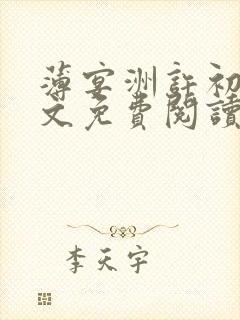 薄宴洲許初
文免費閱讀
李天宇